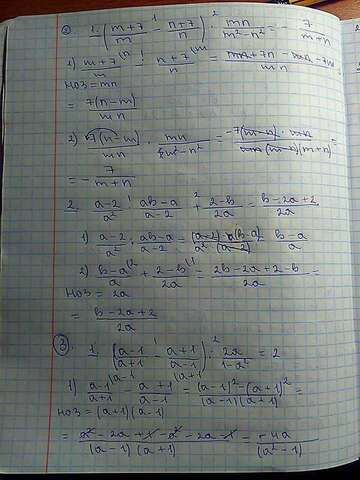 ② 1. ( m+7/m -¹ n+7/n ) ·² mn/(m²-n²) = - 7/(m+n)
1) m+7/m ⁽ⁿ - n+7/n ⁽ᵐ = (mn+7n-mn-7m)/mn =
НОЗ = mn
= 7(n-m)/mn
2) 7(n-m)/mn · mn/(m²-n²) = -7(m-n)·mn/(mn(m-n)(m+n)) =
= - 7/(m+n)
2. (a-2)/a² ·¹ (ab-a)/(a-2) +² (2-b)/2a = (b-2a+2)/2a
1) (a-2)/a² · (ab-a)/(a-2) = (a-2)·a(b-a)/(a²(a-2)) = (b-a)/a
2) (b-a)/a ⁽² + (2-b)/2a ⁽¹ = (2b-2a+2-b)/2a =
НОЗ = 2a
= (b-2a+2)/2a
③. 1. ( (a-1)/(a+1) -¹ (a+1)/(a-1) ) :² 2a/(1-a²) = 2
1) (a-1)/(a+1) ⁽ᵃ⁻¹ - (a+1)/(a-1) ⁽ᵃ⁺¹ = ((a-1)²-(a+1)²)/((a-1)(a+1)) =
НОЗ = (a+1)(a-1)
= (a²-2a+1-a²-2a-1)/((a-1)(a+1)) = -4a/(a²-1)